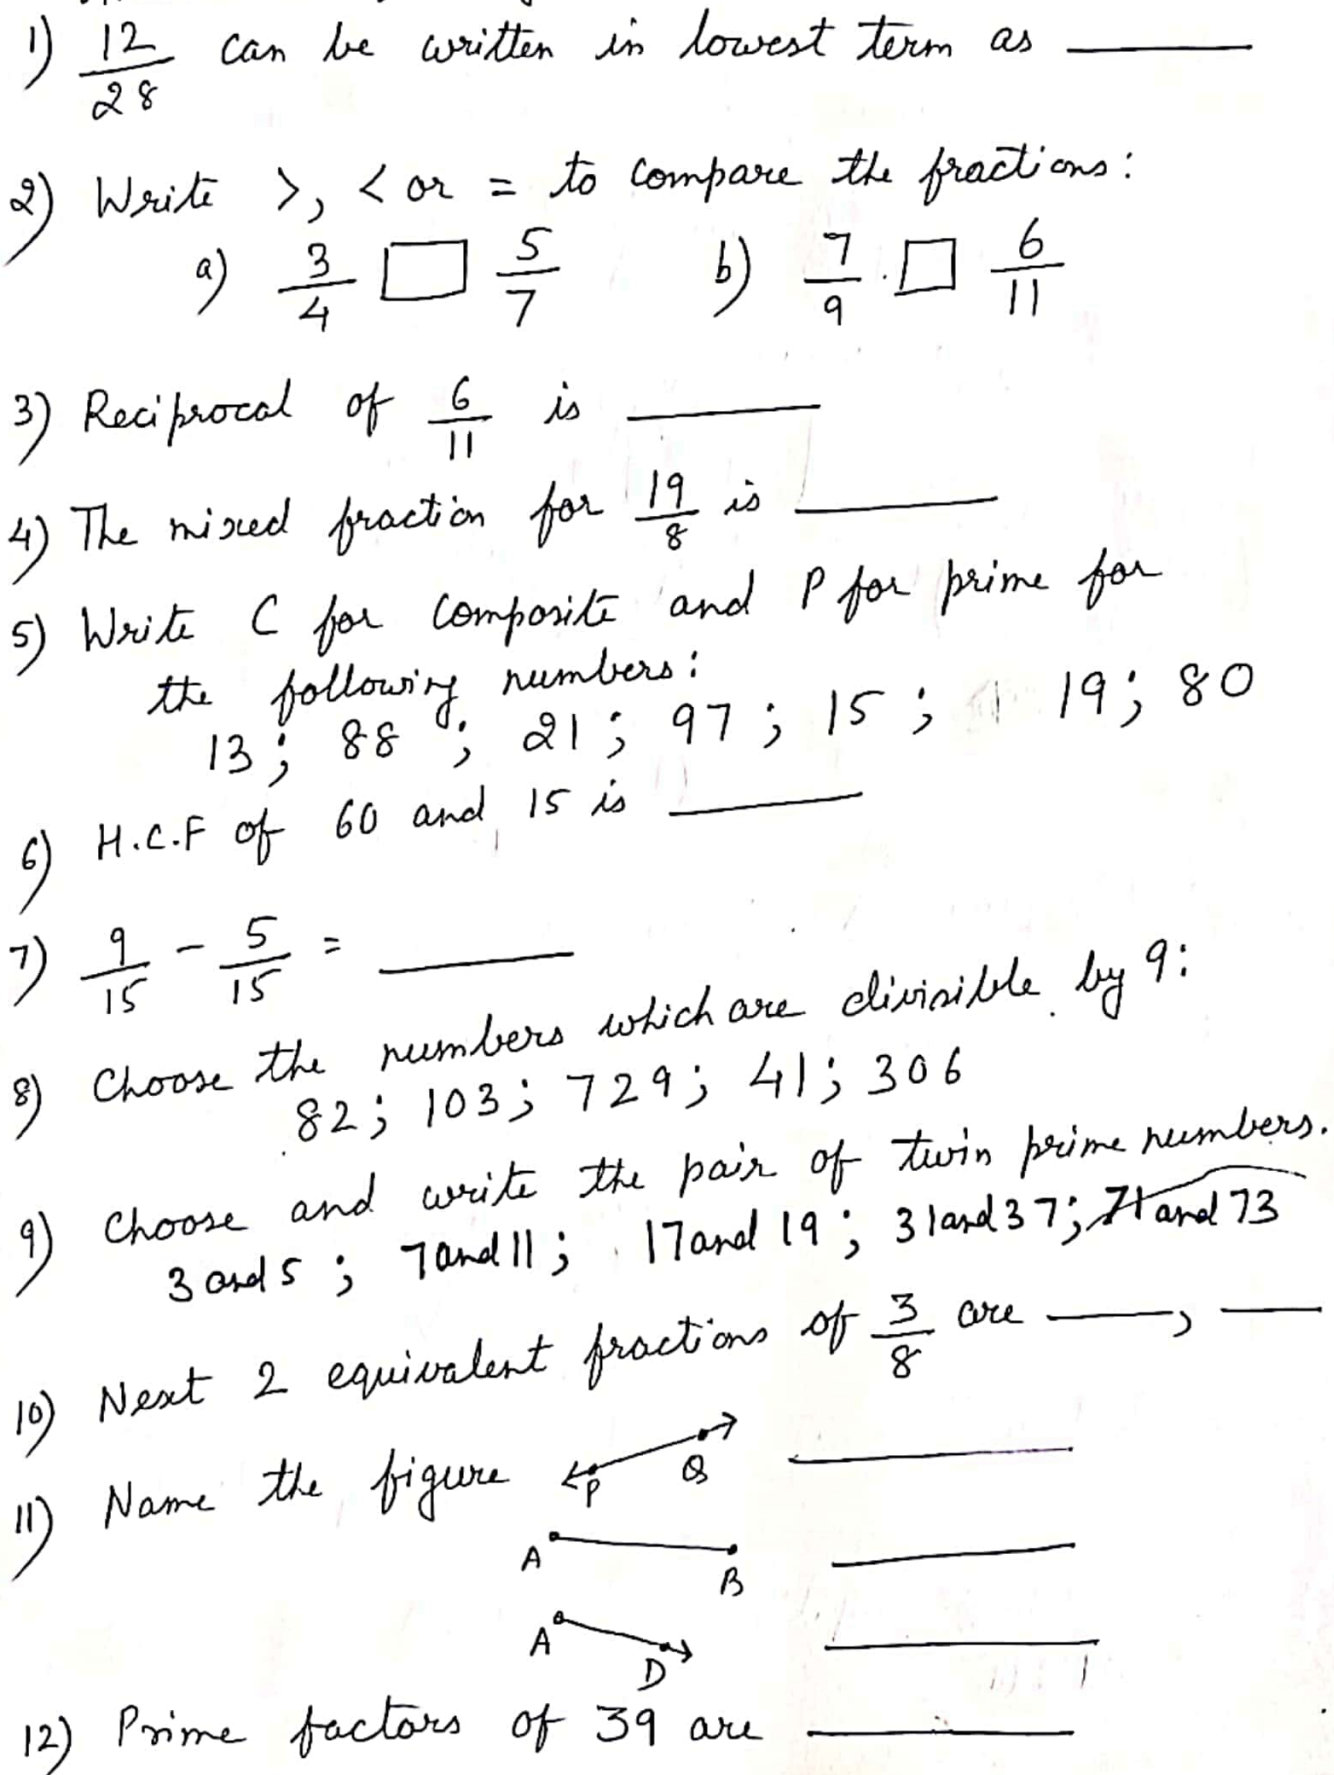 1) 12/28 can be written in lowest term as ____
2) Write >, < or = to compare the fractions:
a) 3/4 □ 5/7 b) 7/9 □ 6/11
3) Reciprocal of 6/11 is ____
4) The mixed fraction for 19/8 is ____
5) Write C for composite and P for prime for
the following numbers:
13; 88; 21; 97; 15; 19; 80
6) H.C.F of 60 and 15 is ____
7) 9/15 - 5/15 = ____
8) Choose the numbers which are divisible by 9:
82; 103; 729; 41; 306
9) Choose and write the pair of twin prime numbers.
3 and 5; 7 and 11; 17 and 19; 31 and 37; 71 and 73
10) Next 2 equivalent fractions of 3/8 are ____, ____
11) Name the figure P Q ____
A B ____
A D ____
12) Prime factors of 39 are ____